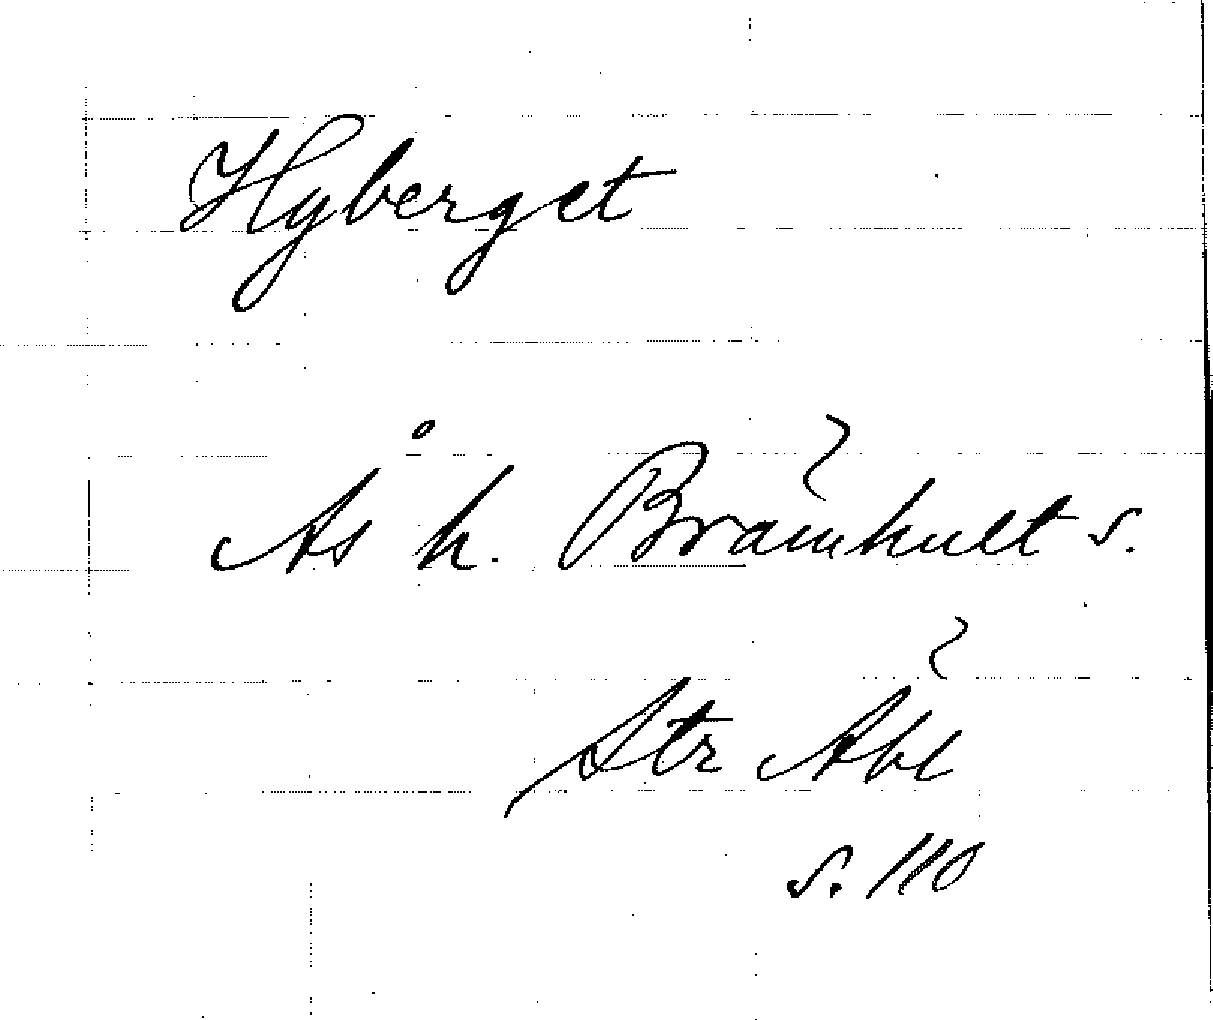 Hyberget
Ås h. Brämhult s.
Str Äbl
s. 110